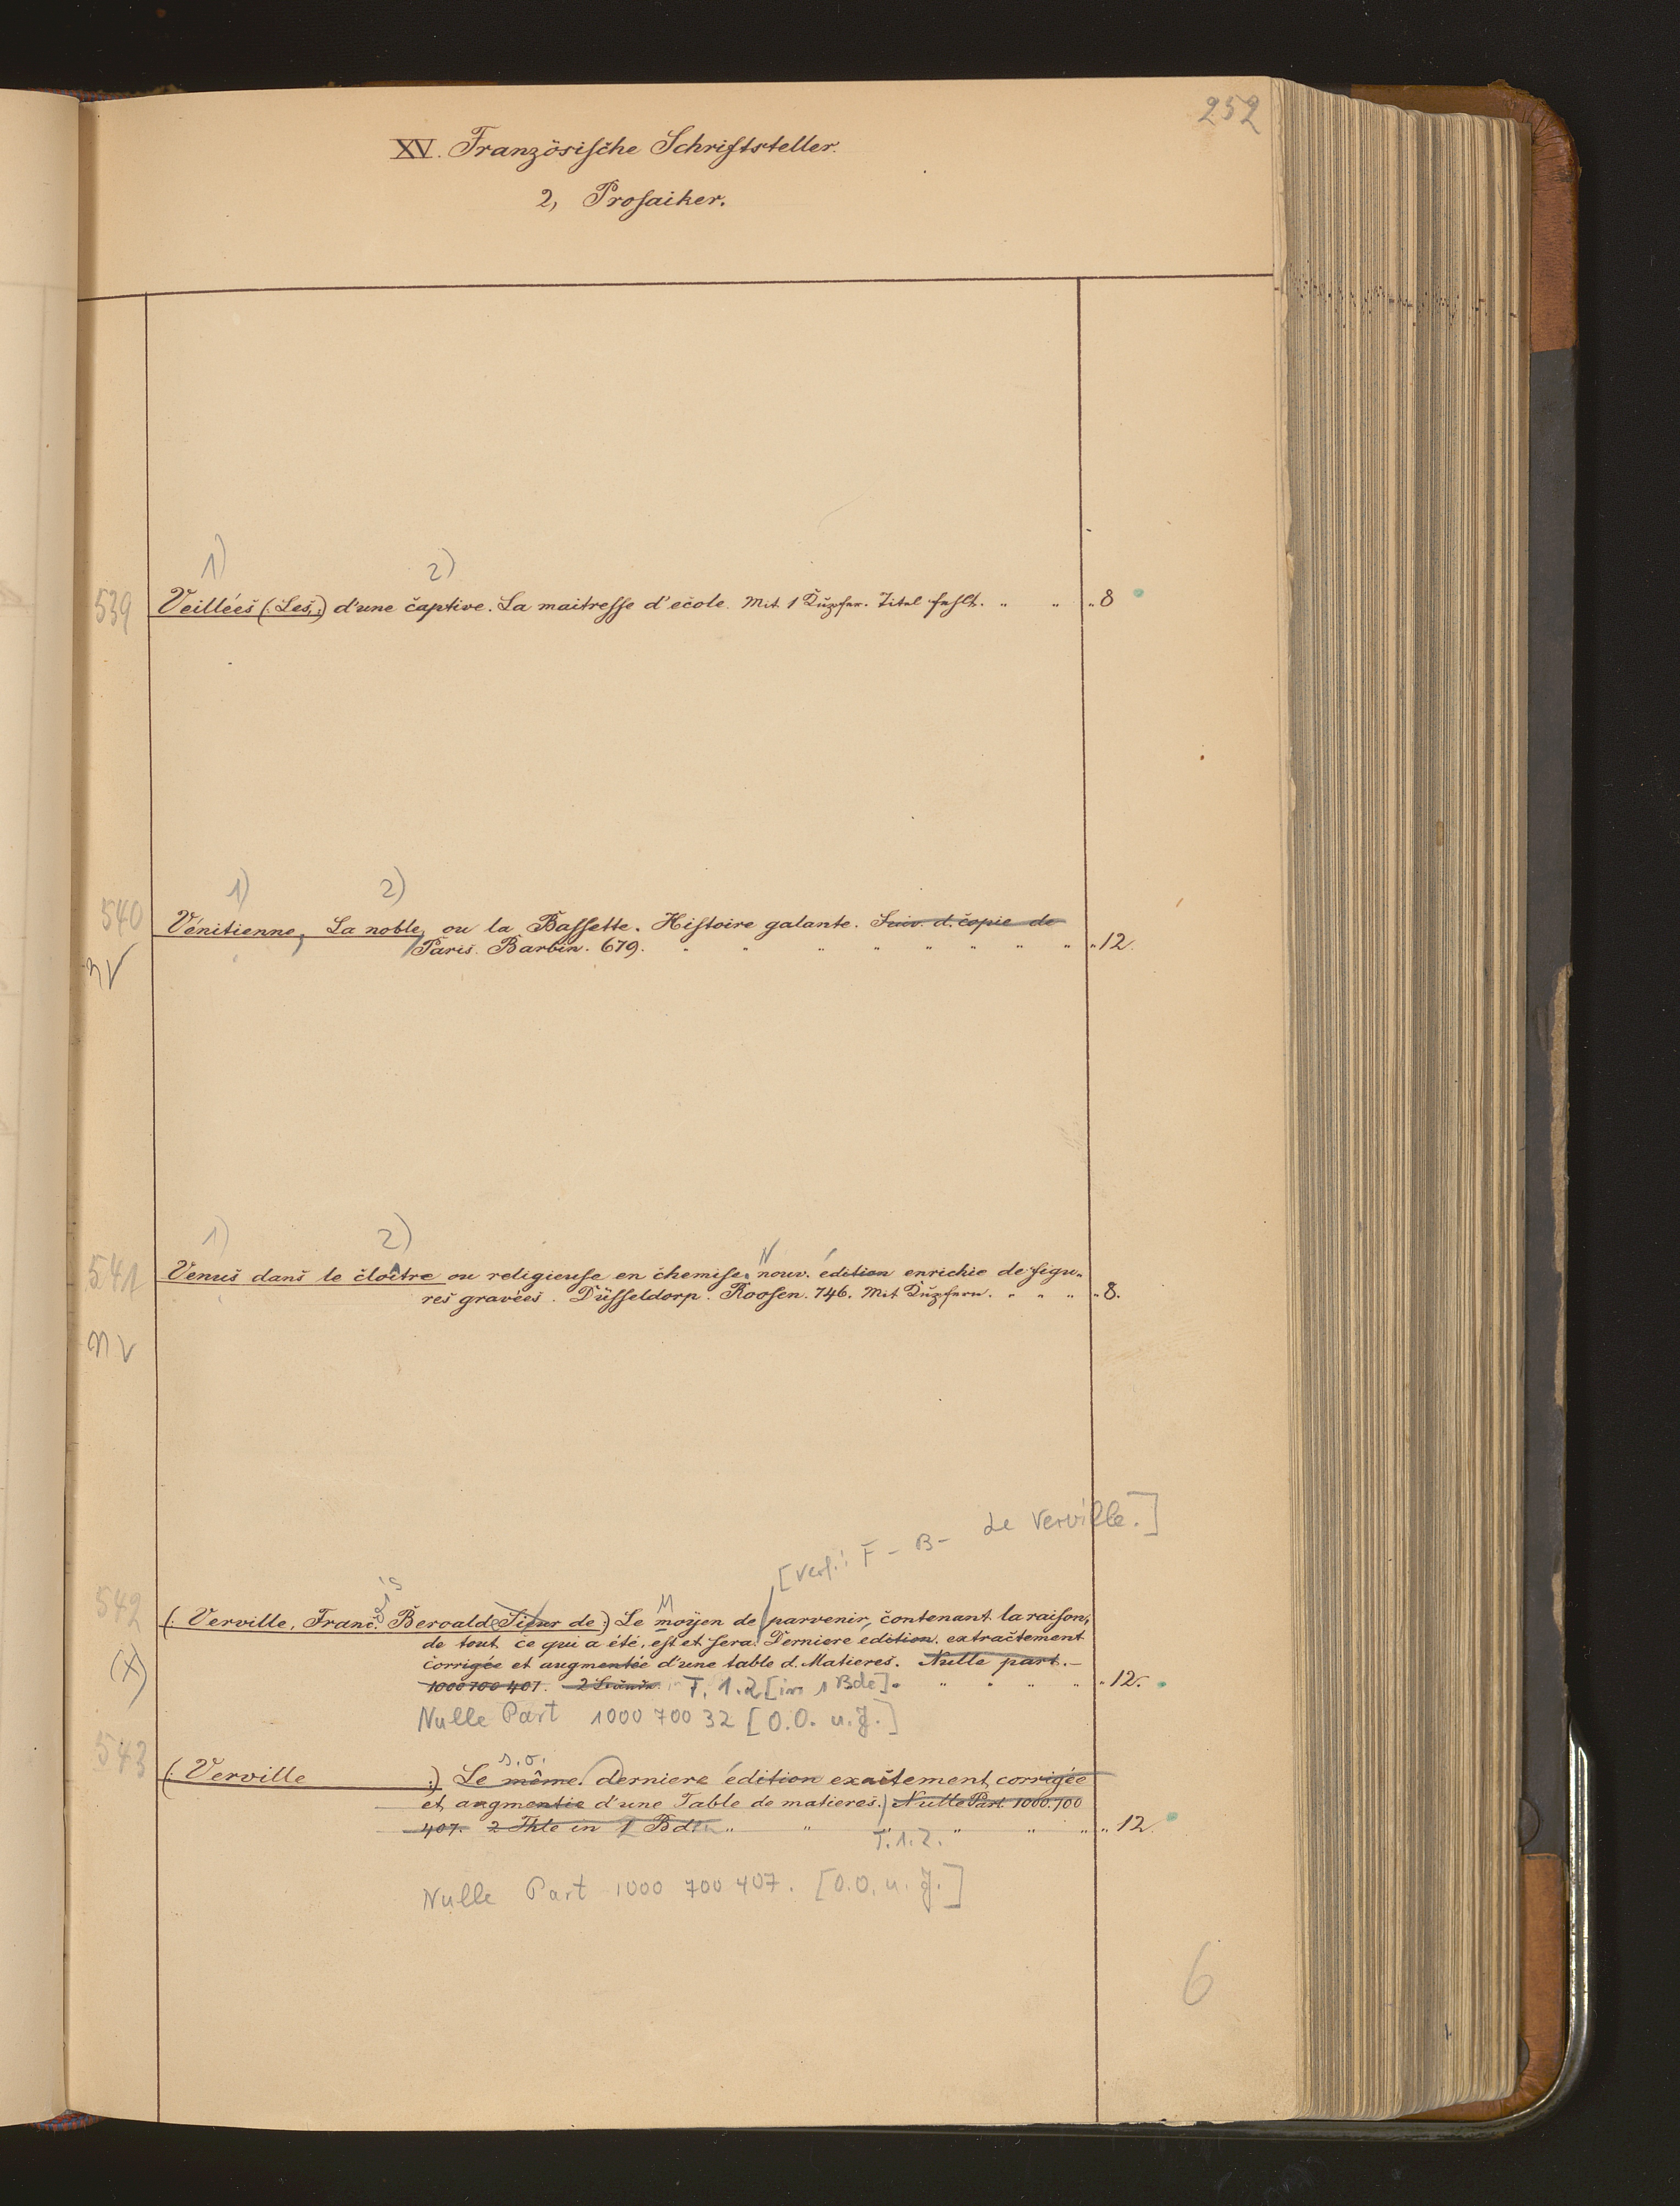 252
XV. Französische Schriftsteller.
2, Prosaiker.
1) 2)
539 Veillées (: Les, :) d'une captive. La maitresse d'ecole. Mit 1 Kupfer. Titel fehlt. " " " 8
1) 2)
540 Vénitienne, La noble, ou la Bassette. Histoire galante. Suiv. d. copie de
Paris. Barbin. 679. " " " " " " " " " 12.
n V
1) 2)
541 Venus dans le cloître ou religieuse en chemise. nouv. édition enrichie de figu-
N
res gravées. Düsseldorp. Roosen. 746. Mit Kupfern. " " " " 8.
n v
[Verf.: F - B - de Verville.]
542 (: Verville, Franc. Beroalde Sieur de :) Le moyen de parvenir, contenant la raison,
is M
de tout ce qui a été, est et sera. Derniere edition. extractement
(x) corrigée et augmentée d'une table d. Matieres. Nulle part. –
1000 700 407. T. 1.2 [in 1 Bde]. " " " " " 12.
Nulle Part 1000 700 32 [O.O. u. J.]
s. o.
543 (: Verville :) Le même. derniere édition exactement corrigée
et augmentie d'une Table de matieres. Nulle Part. 1000.700
407. 2 Thle in 1 Bd. " " " " " " " 12.
T. 1. 2.
Nulle Part 1000 700 407. [O.O. u. J.]
6